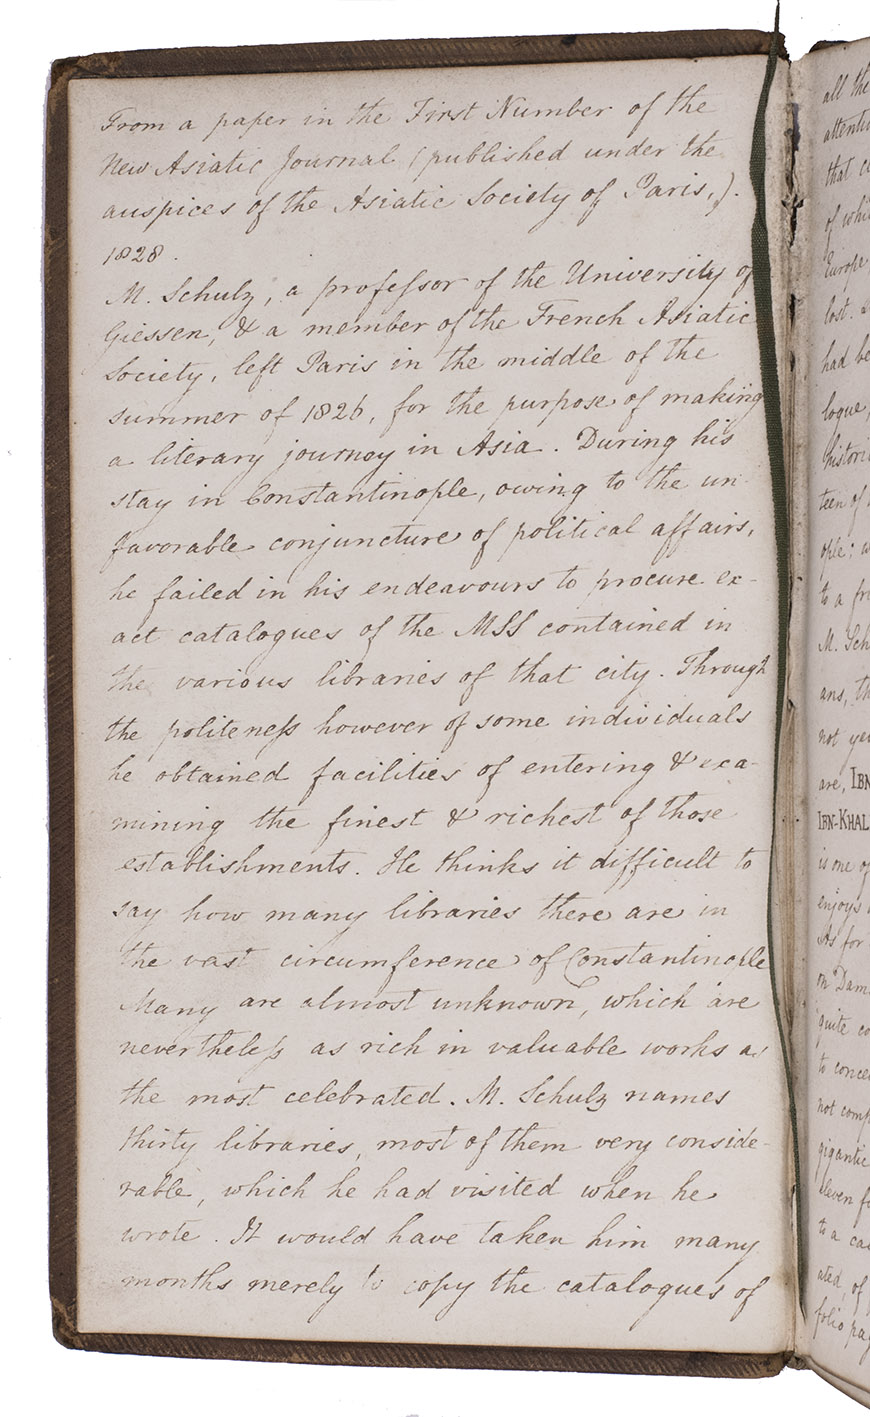 From a paper in the First Number of the
New Asiatic Journal (published under the
auspices of the Asiatic Society of Paris,).
1828.
M. Schulz, a professor of the University of
Giessen, & a member of the French Asiatic
Society, left Paris in the middle of the
summer of 1826, for the purpose of making
a literary journey in Asia. During his
stay in Constantinople, owing to the un-
favorable conjuncture of political affairs,
he failed in his endeavours to procure ex-
act catalogues of the MSS contained in
the various libraries of that city. Through
the politeness however of some individuals
he obtained facilities of entering & exa-
mining the finest & richest of those
establishments. He thinks it difficult to
say how many libraries there are in
the vast circumference of Constantinople
Many are almost unknown, which are
nevertheless as rich in valuable works as
the most celebrated. M. Schulz names
thirty libraries, most of them very conside-
rable, which he had visited when he
wrote. It would have taken him many
months merely to copy the catalogues of
all the
that
of
Europe
lost.
had be
logue,
teen of
ople;
to a
M. Sch
ans, th
not ye
are, IBN
IBN-KHAL
is one of
enjoys
As for
on Dam
quite co
to conce
not comp
gigantic
eleven
to a ca
ated, of
folio pag